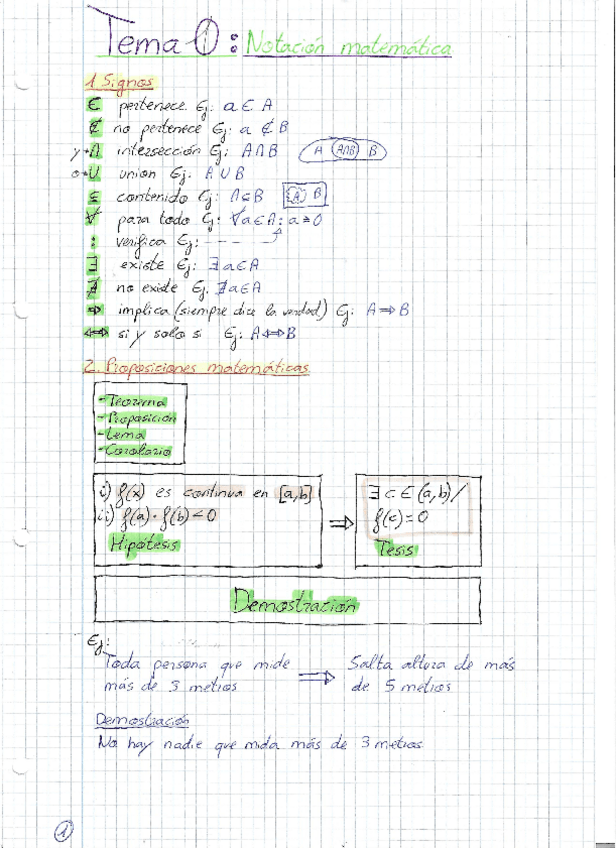 Tema 0: Notación matemática
1 Signos
∈ pertenece Ej: a ∈ A
∉ no pertenece Ej: a ∉ B
y→∩ intersección Ej: A∩B A A∩B B
o→∪ union Ej: A ∪ B
⊆ contenido Ej: A⊆B A B
∀ para todo Ej: ∀a∈A: a≥0
: verifica Ej:
∃ existe Ej: ∃a∈A
∄ no existe Ej: ∄a∈A
⇒ implica (siempre dice la verdad) Ej: A⇒B
⇔ si y solo si Ej: A⇔B
2. Proposiciones matemáticas
-Teorema
-Proposición
-Lema
-Corolario
i) f(x) es continua en [a,b]
ii) f(a)·f(b)<0
Hipótesis
⇒
∃ c ∈ (a,b)/
f(c)=0
Tesis
Demostración
Ej:
Toda persona que mide ⇒ Salta altura de más
más de 3 metros de 5 metros
Demostración
No hay nadie que mida más de 3 metros
1